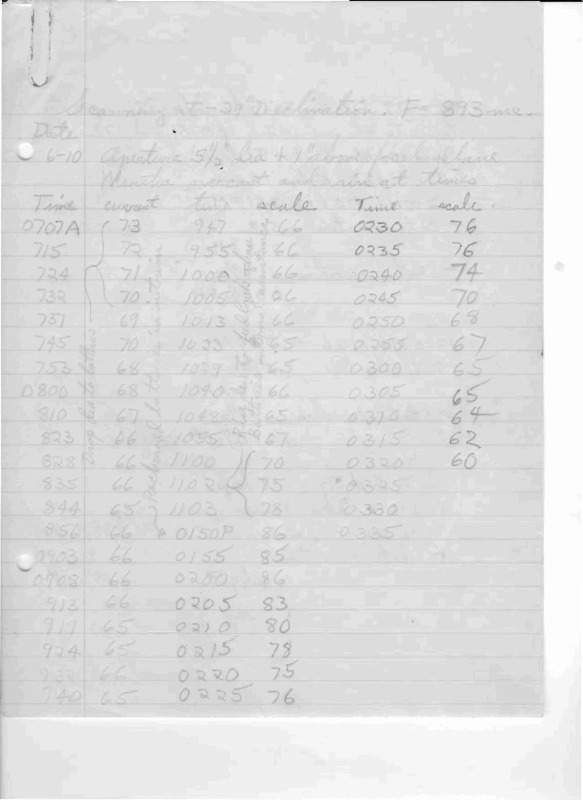 Scanning at -29° Declination. F= 893 mc.
Date
6-10 Aperture 5½" Dia + 1" above focal line
Weather overcast and rain at times
Time current time scale Time scale.
0707A 73 947 66 0230 76
715 72 955 66 0235 76
724 71 1000 66 0240 74
732 70 1005 66 0245 70
737 69 1013 66 0250 68
745 70 1023 65 0255 67
753 68 1029 65 0300 65
0800 68 1040 66 0305 65
810 67 1048 65 0310 64
823 66 1055 67 0315 62
828 66 1100 70 0320 60
835 66 1102 75 0325
844 65 1103 78 0330
856 66 0150P 86 0335
0903 66 0155 85
0908 66 0200 86
913 66 0205 83
917 65 0210 80
924 65 0215 78
932 66 0220 75
940 65 0225 76